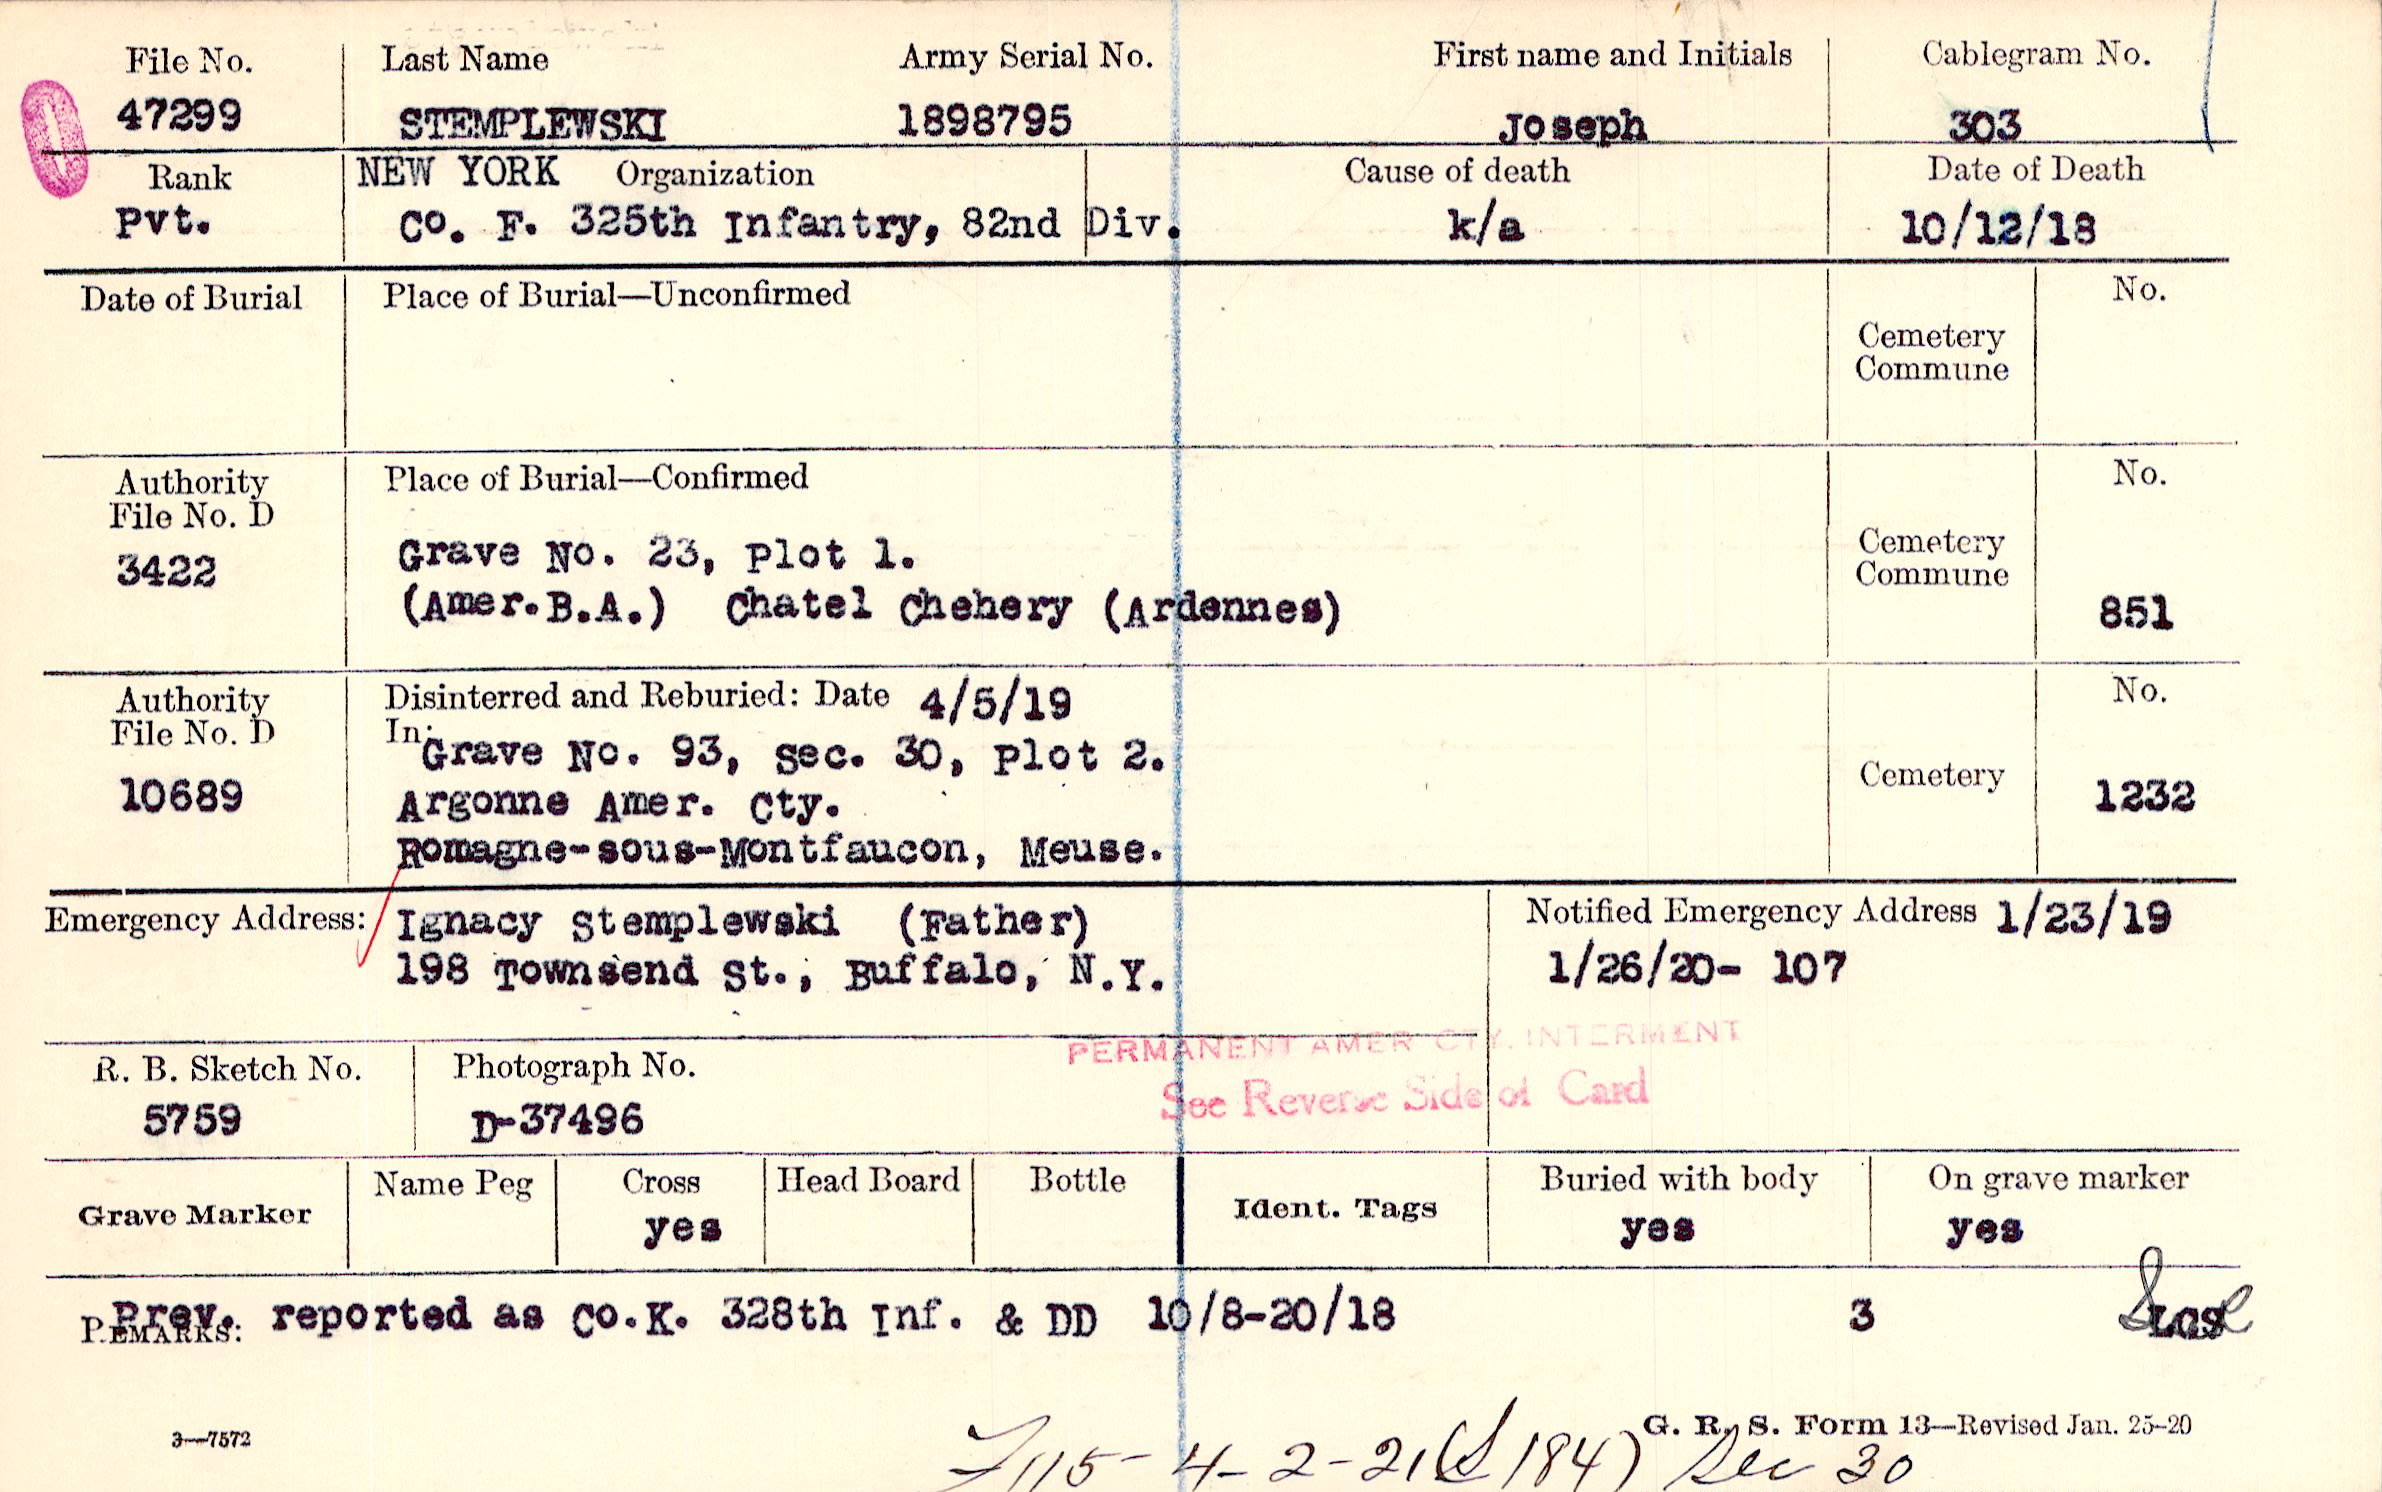 File No. Last Name Army Serial No. First name and Initials Cablegram No.
47299 STEMPLEWSKI 1898795 Joseph 303
Rank NEW YORK Organization Cause of death Date of Death
Pvt. Co. F. 325th Infantry, 82nd Div. k/a 10/12/18
Date of Burial Place of Burial—Unconfirmed No.
Cemetery
Commune
Authority Place of Burial—Confirmed No.
File No. D
3422 Grave No. 23, Plot 1. Cemetery
Commune
(Amer.B.A.) Chatel Chehery (Ardennes) 851
Authority Disinterred and Reburied: Date 4/5/19 No.
File No. D In:
Grave No. 93, Sec. 30, Plot 2.
10689 Argonne Amer. Cty. Cemetery 1232
Romagne-sous-Montfaucon, Meuse.
Emergency Address: Ignacy Stemplewski (Father) Notified Emergency Address 1/23/19
198 Townsend St., Buffalo, N.Y. 1/26/20- 107
PERMANENT AMER CTY. INTERMENT
R. B. Sketch No. Photograph No. See Reverse Side of Card
5759 D-37496
Grave Marker Name Peg Cross Head Board Bottle Ident. Tags Buried with body On grave marker
yes yes yes
REMARKS: Prev. reported as Co.K. 328th Inf. & DD 10/8-20/18 3
3—7572 G. R. S. Form 13—Revised Jan. 25-20
4-2-21 (S 184) Sec 30